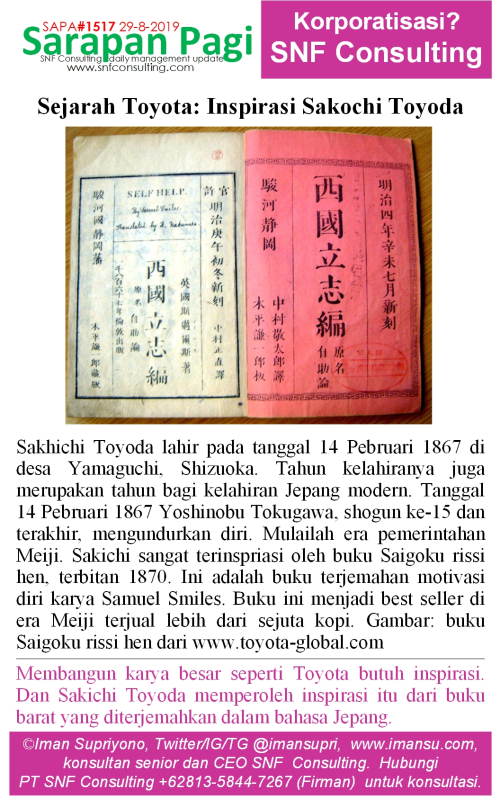 SAPA#1517 29-8-2019
Sarapan Pagi
SNF Consulting daily management update
www.snfconsulting.com
Korporatisasi?
SNF Consulting
Sejarah Toyota: Inspirasi Sakochi Toyoda
官許
明治庚午初冬新刻
中村正直譯
SELF HELP.
By Samuel Smiles.
Translated by K. Nakamura
英國斯邁爾斯著
西國立志編
原名自助論
千八百六十七年倫敦出版
駿河國静岡藩
木平謙一郎藏版
明治四年辛未七月新刻
西國立志編
原名
自助論
駿河静岡
中村敬太郎譯
木平謙一郎板
Sakhichi Toyoda lahir pada tanggal 14 Pebruari 1867 di
desa Yamaguchi, Shizuoka. Tahun kelahiranya juga
merupakan tahun bagi kelahiran Jepang modern. Tanggal
14 Pebruari 1867 Yoshinobu Tokugawa, shogun ke-15 dan
terakhir, mengundurkan diri. Mulailah era pemerintahan
Meiji. Sakichi sangat terinspriasi oleh buku Saigoku rissi
hen, terbitan 1870. Ini adalah buku terjemahan motivasi
diri karya Samuel Smiles. Buku ini menjadi best seller di
era Meiji terjual lebih dari sejuta kopi. Gambar: buku
Saigoku rissi hen dari www.toyota-global.com
Membangun karya besar seperti Toyota butuh inspirasi.
Dan Sakichi Toyoda memperoleh inspirasi itu dari buku
barat yang diterjemahkan dalam bahasa Jepang.
©Iman Supriyono, Twitter/IG/TG @imansupri, www.imansu.com,
konsultan senior dan CEO SNF Consulting. Hubungi
PT SNF Consulting +62813-5844-7267 (Firman) untuk konsultasi.